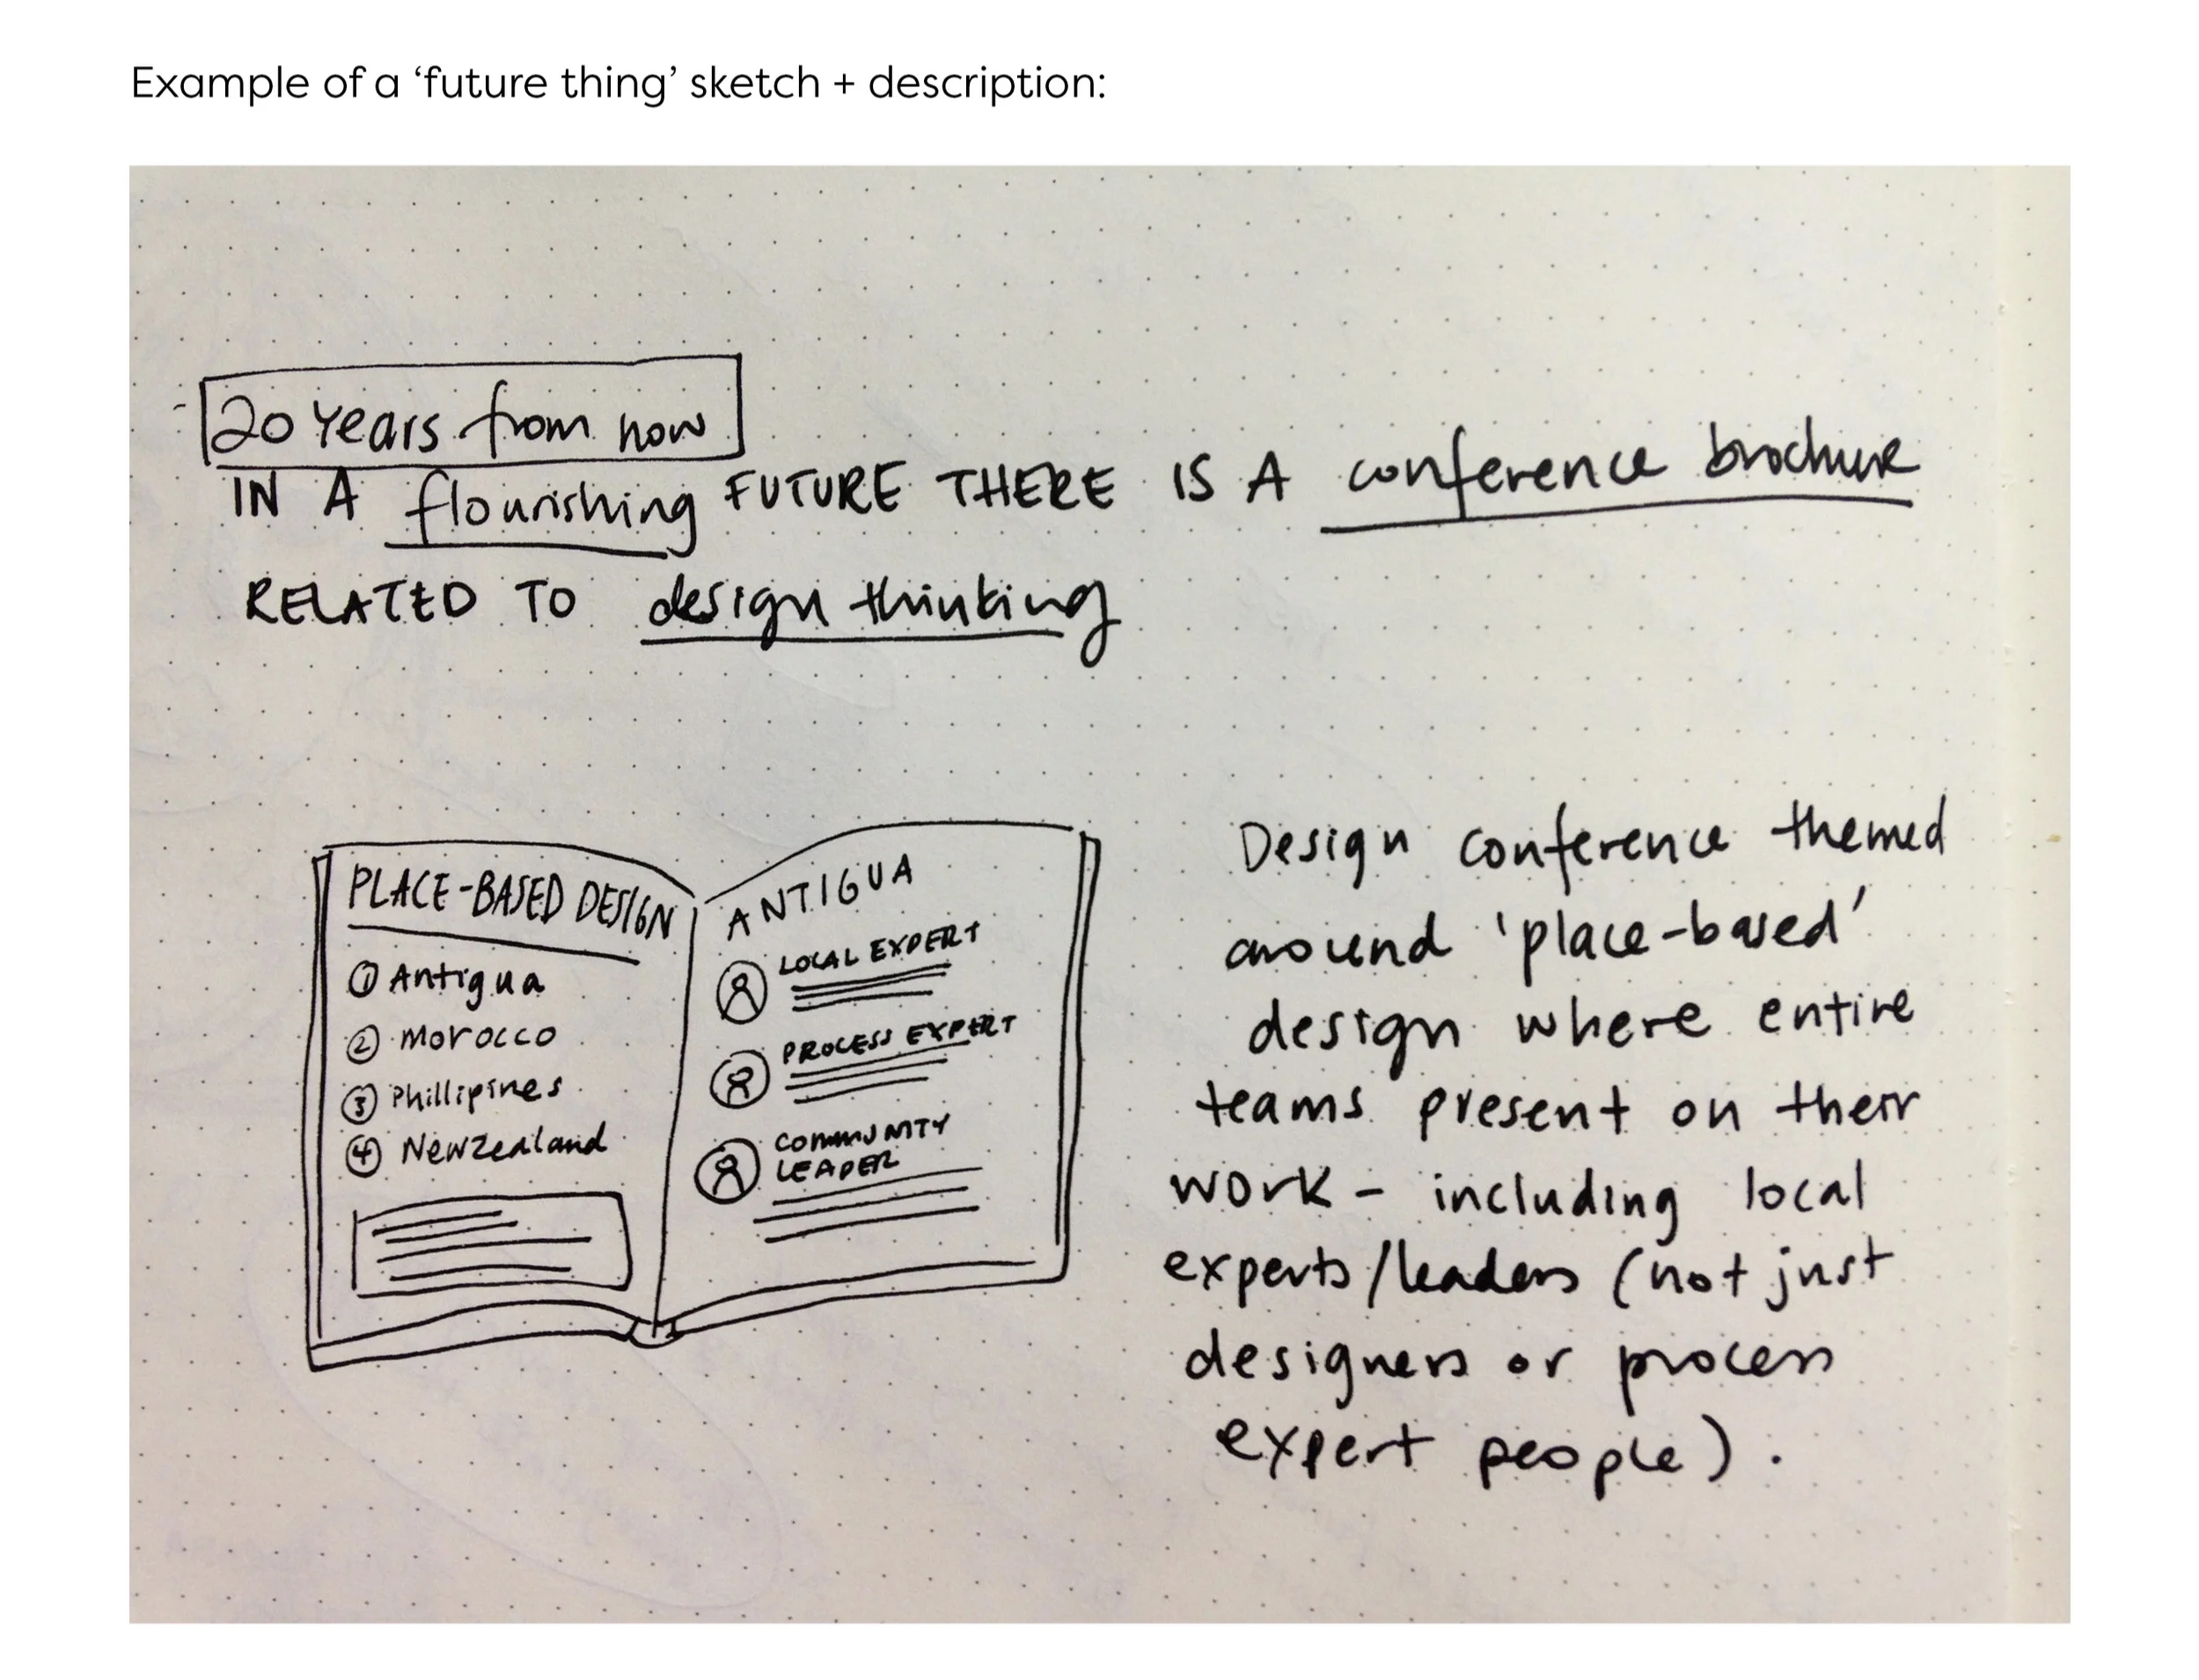 Example of a ‘future thing’ sketch + description:
20 Years from now
IN A flourishing FUTURE THERE IS A conference brochure
RELATED TO design thinking
PLACE-BASED DESIGN
① Antigua
② Morocco
③ Phillipines
④ New Zealand
ANTIGUA
LOCAL EXPERT
PROCESS EXPERT
COMMUNITY
LEADER
Design conference themed
around 'place-based'
design where entire
teams present on their
work - including local
experts/leaders (not just
designers or process
expert people).